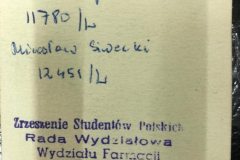 11780/L
Mirosław Siwecki
12451/L
Zrzeszenie Studentów Polskich
Rada Wydziałowa
Wydziału Farmacji